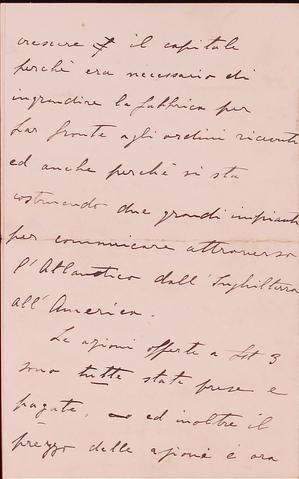 crescere il capitale
perchè era necessario di
ingrandire la fabbrica per
far fronte agli ordini ricevuti
ed anche perchè si sta
costruendo due grandi impianti
per communicare attraverso
l'Atlantico dall'Inghilterra
all'America.
Le azioni offerte a Lst 3
sono tutte state prese e
pagate, ed inoltre il
prezzo delle azioni è ora